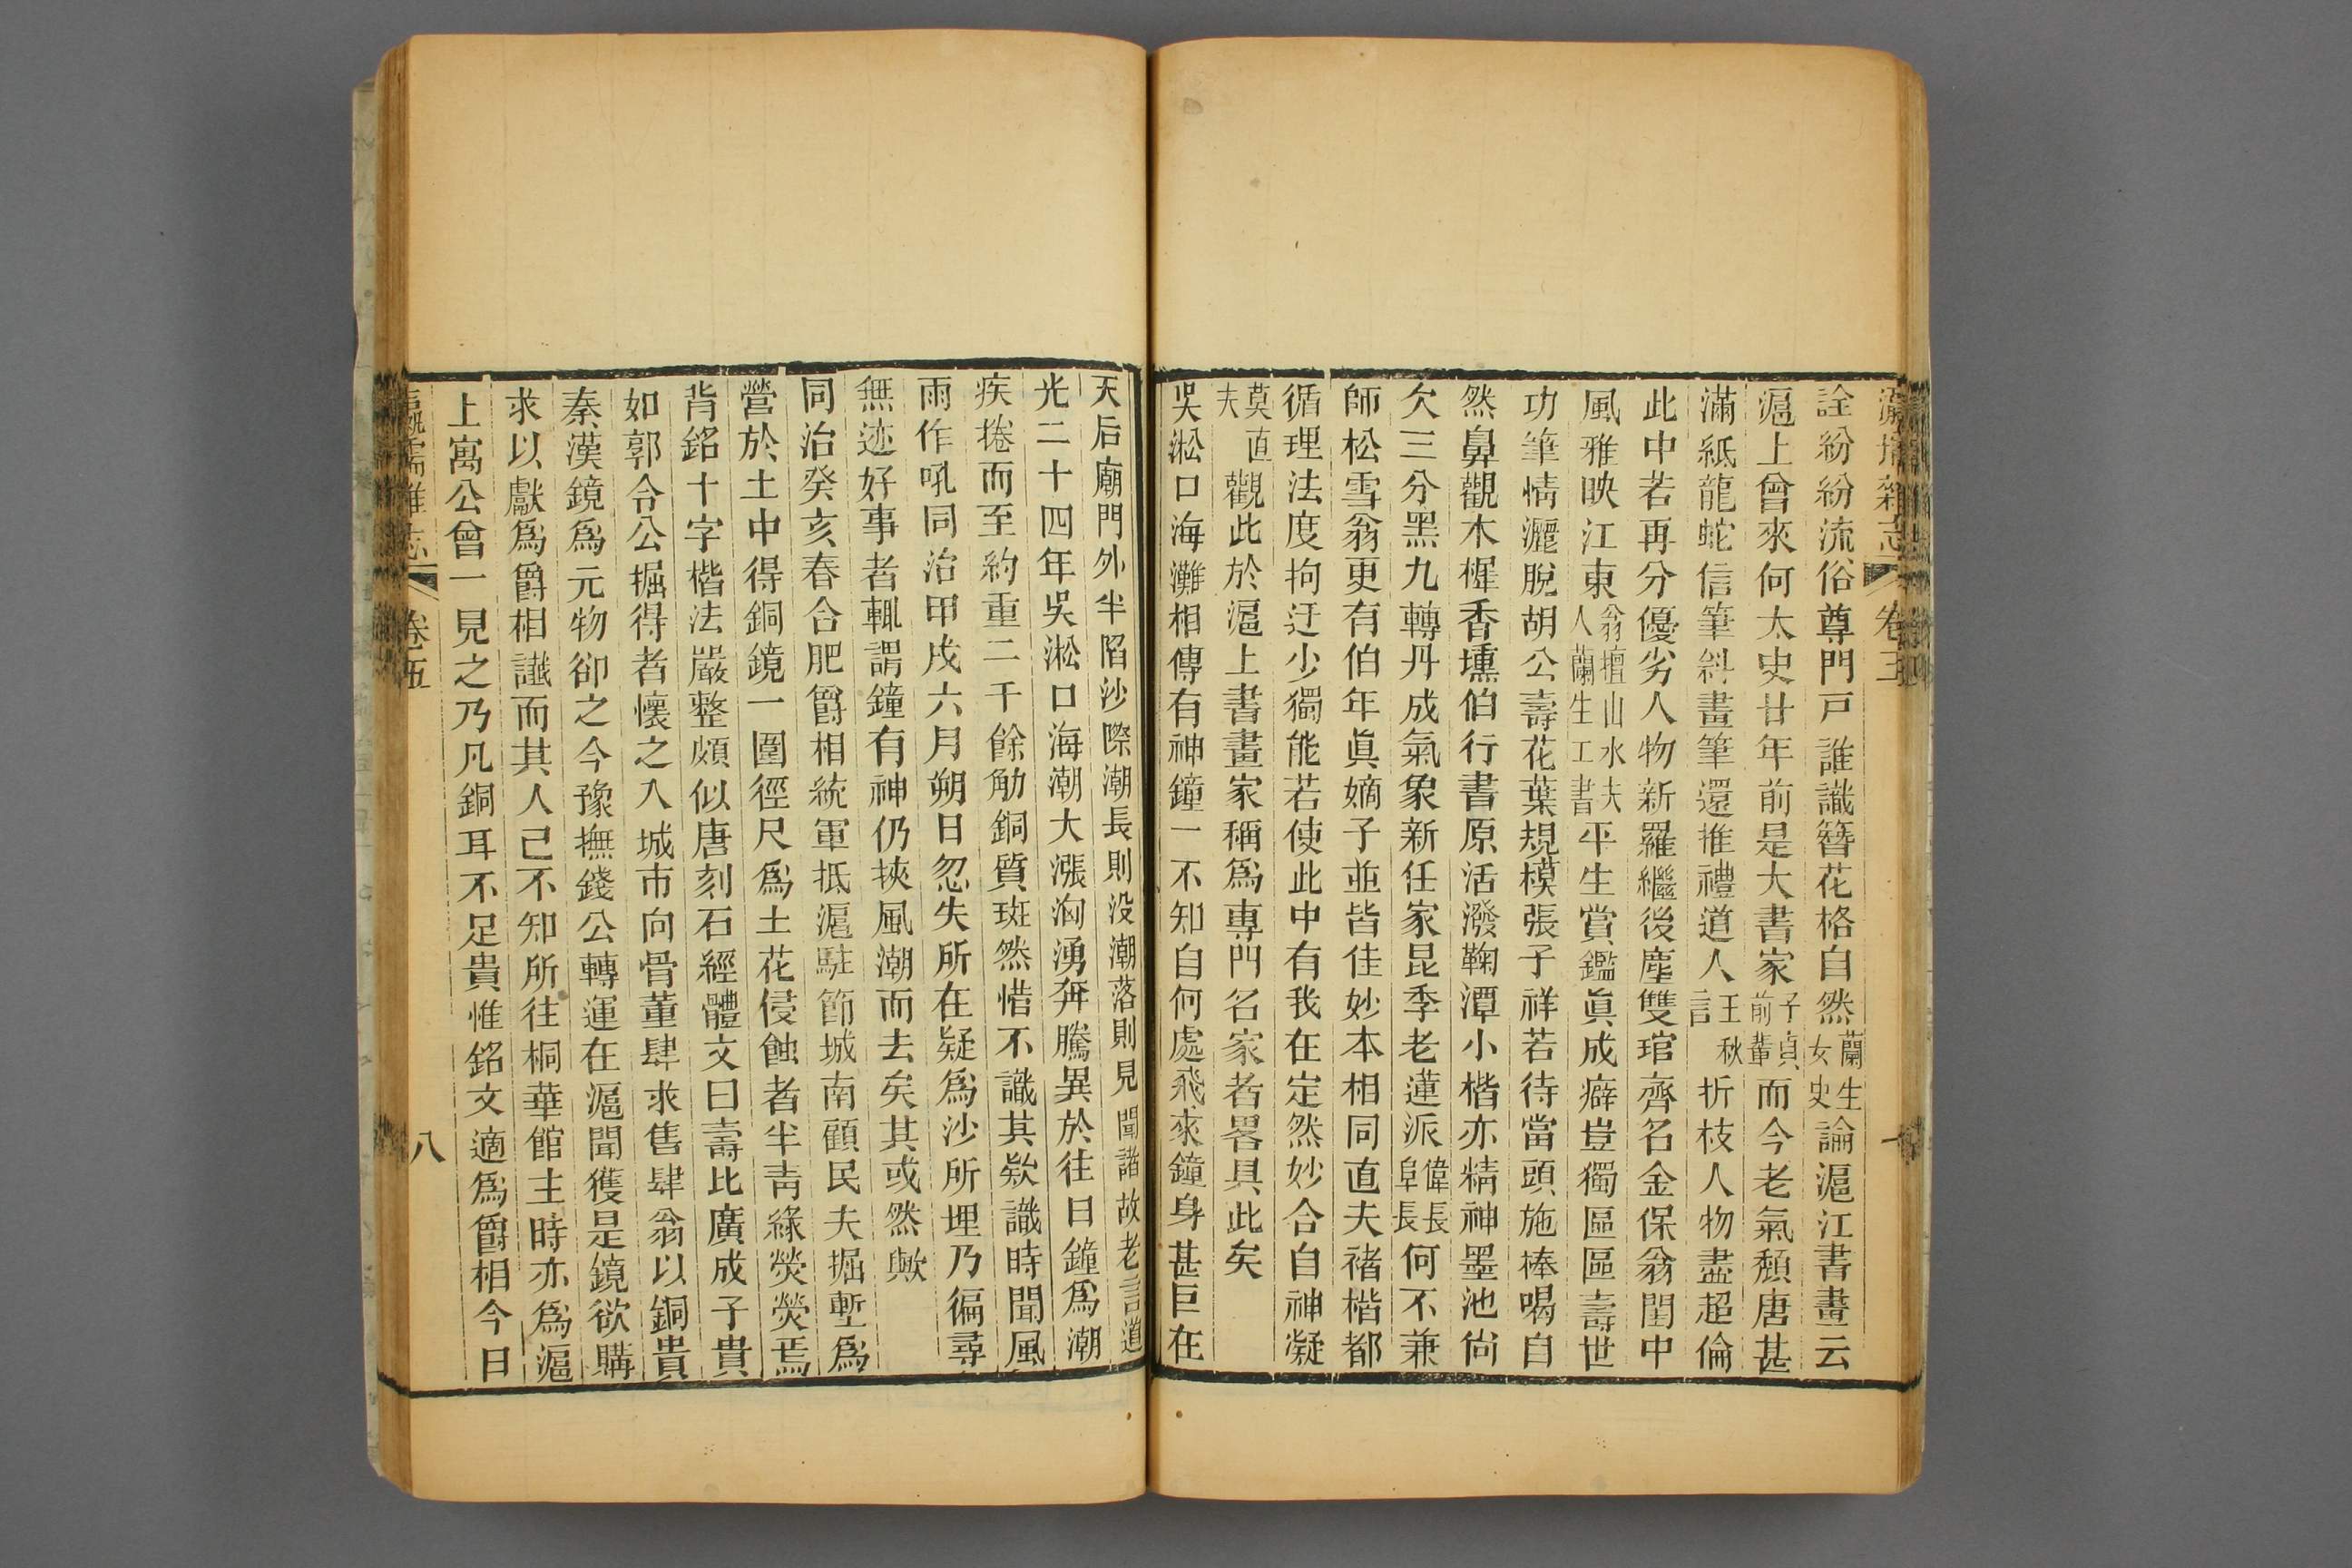 瀛壖雜志 卷三
詮紛紛流俗尊門戸誰識簪花格自然蘭生女史論滬江書畫云
滬上曾來何太史廿年前是大書家子貞前輩而今老氣頽唐甚
滿紙龍蛇信筆斜畫筆還推禮道人王秋言折枝人物盡超倫
此中若再分優劣人物新羅繼後塵雙琯齊名金保翁閨中
風雅映江東翁壇山水夫人蘭生工書平生賞鑑眞成癖豈獨區區壽世
功筆情灑脫胡公壽花葉規模張子祥若待當頭施棒喝自
然鼻觀木樨香壎伯行書原活潑鞠潭小楷亦精神墨池尙
欠三分黑九轉丹成氣象新任家昆季老蓮派偉長阜長何不兼
師松雪翁更有伯年眞嫡子並皆佳妙本相同直夫褚楷都
循理法度拘迂少獨能若使此中有我在定然妙合自神凝
莫直夫觀此於滬上書畫家稱爲專門名家者畧具此矣
吳淞口海灘相傳有神鐘一不知自何處飛來鐘身甚巨在
天后廟門外半陷沙際潮長則没潮落則見聞諸故老言道
光二十四年吳淞口海潮大漲洶湧奔騰異於往日鐘爲潮
疾捲而至約重二千餘觔銅質斑然惜不識其欵識時聞風
雨作吼同治甲戌六月朔日忽失所在疑爲沙所埋乃徧尋
無迹好事者輒謂鐘有神仍挾風潮而去矣其或然歟
同治癸亥春合肥爵相統軍抵滬駐節城南顧民夫掘塹爲
營於土中得銅鏡一圍徑尺爲土花侵蝕者半靑緣熒熒焉
背銘十字楷法嚴整頗似唐刻石經體文曰壽比廣成子貴
如郭令公掘得者懷之入城市向骨董肆求售肆翁以銅貴
秦漢鏡爲元物卻之今豫撫錢公轉運在滬聞獲是鏡欲購
求以獻爲爵相讖而其人已不知所往桐華館主時亦爲滬
上寓公曾一見之乃凡銅耳不足貴惟銘文適爲爵相今日
瀛壖雜志 卷五 八